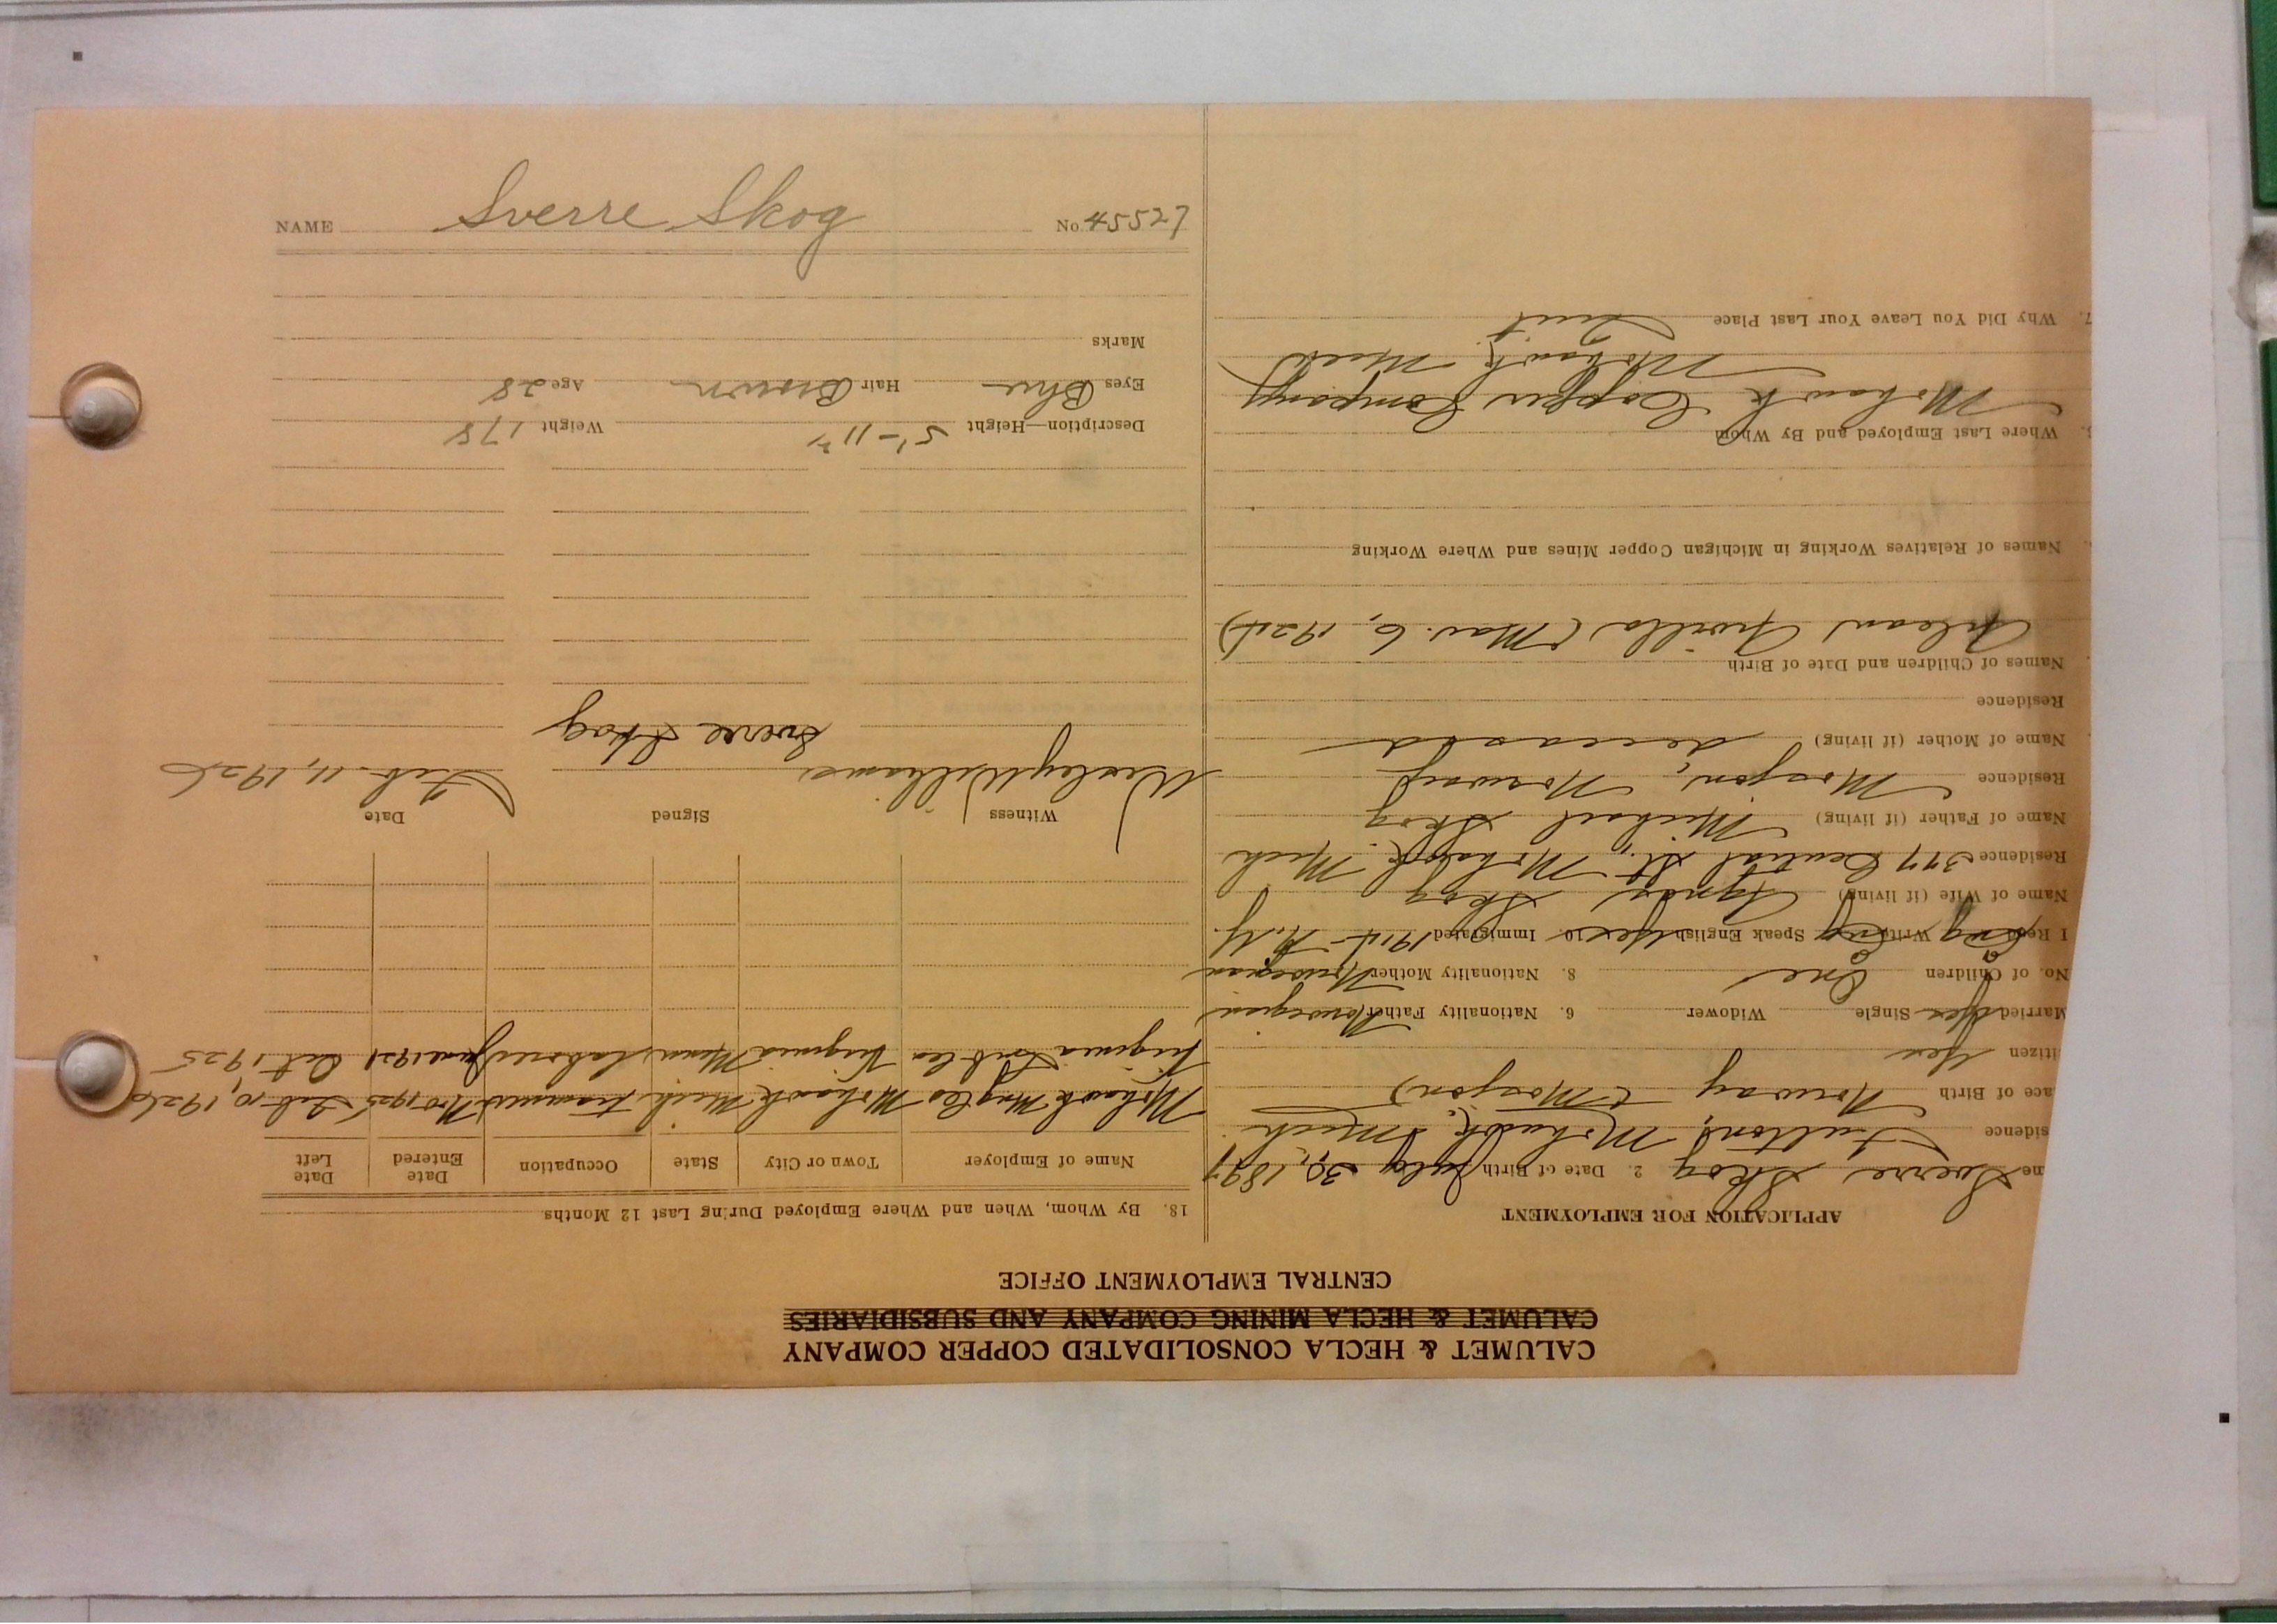 CALUMET & HECLA CONSOLIDATED COPPER COMPANY
CALUMET & HECLA MINING COMPANY AND SUBSIDIARIES
CENTRAL EMPLOYMENT OFFICE
APPLICATION FOR EMPLOYMENT
me Sverre Skog 2. Date of Birth July 30, 1897
sidence Fulton, Mohawk, Mich
ace of Birth Norway (Mosjon)
itizen Yes
Married Yes Single Widower 6. Nationality Father Norwegian
No. of Children One 8. Nationality Mother Norwegian
I Read Eng Write Eng Speak English Yes 10. Immigrated 1914 N.Y.
Name of Wife (if living) Agnes Skog
Residence 377 Central St., Mohawk Mich
Name of Father (if living) Michael Skog
Residence Mosjon, Norway
Name of Mother (if living) deceased
Residence
Names of Children and Date of Birth
(Mar. 6, 1924)
Names of Relatives Working in Michigan Copper Mines and Where Working
Where Last Employed and By Whom
Mohawk Copper Company
Mohawk Mich
7. Why Did You Leave Your Last Place Quit
18. By Whom, When and Where Employed During Last 12 Months
Name of Employer Town or City State Occupation Date Entered Date Left
Mohawk Mng Co Mohawk Mich trammer Nov 1925 Feb 10, 1926
Virginia Co Virginia Minn laborer June 1921 Oct 1925
Witness Signed Date
Wesley Williams Sverre Skog Feb. 11, 1926
Description—Height 5'-11" Weight 178
Eyes Blue Hair Brown Age 28
Marks
NAME Sverre Skog No. 45527